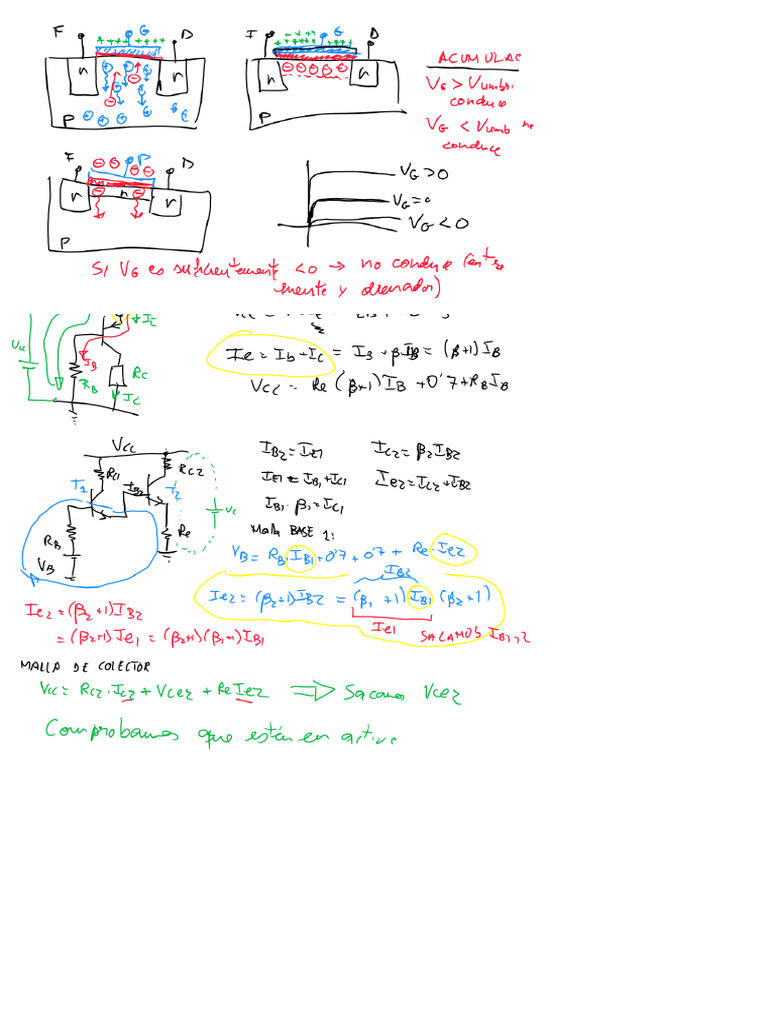 F G D
+ + + + +
n n
P
I G D
+ + + + + + + +
n n
P
ACUMULAC
VG > Vumbr.
conduce
VG < Vumb no
conduce
F P D
n n n
P
VG > 0
VG = 0
VG < 0
Si VG es suficientemente < 0 → no conduce (entre
fuente y drenador)
IE
Vcc
IB
RB
RC
IC
Ie = Ib + Ic = IB + βIB = (β+1) IB
Vcc = Re (β+1) IB + 0'7 + RB IB
Vcc
RC1
RC2
T1
IB2
T2
Vc
RB
Re
VB
IB2 = IE1
IC2 = β2 IB2
IE1 = IB1 + IC1
Ie2 = IC2 + IB2
IB1 · β1 = IC1
Malla BASE 1:
VB = RB · IB1 + 0'7 + 0'7 + Re · Ie2
IB2
Ie2 = (β2+1) IB2 = (β1 + 1) IB1 (β2+1)
Ie1
SACAMOS IB1,2
Ie2 = (β2+1) IB2
= (β2+1) Ie1 = (β2+1)(β1+1) IB1
MALLA DE COLECTOR
Vcc = RC2 · IC2 + VCE2 + Re Ie2 ⇒ Sacamos VCE2
Comprobamos que están en activa